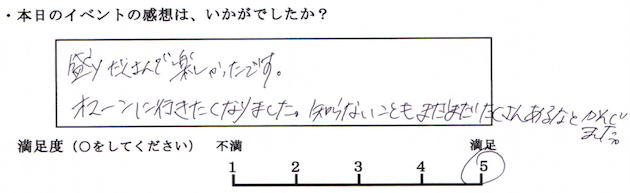 ・本日のイベントの感想は、いかがでしたか？
盛りだくさんで楽しかったです。
オマーンに行きたくなりました。知らないこともまだまだたくさんあるなとかんじ
ました。
満足度（〇をしてください） 不満 満足
1 2 3 4 5